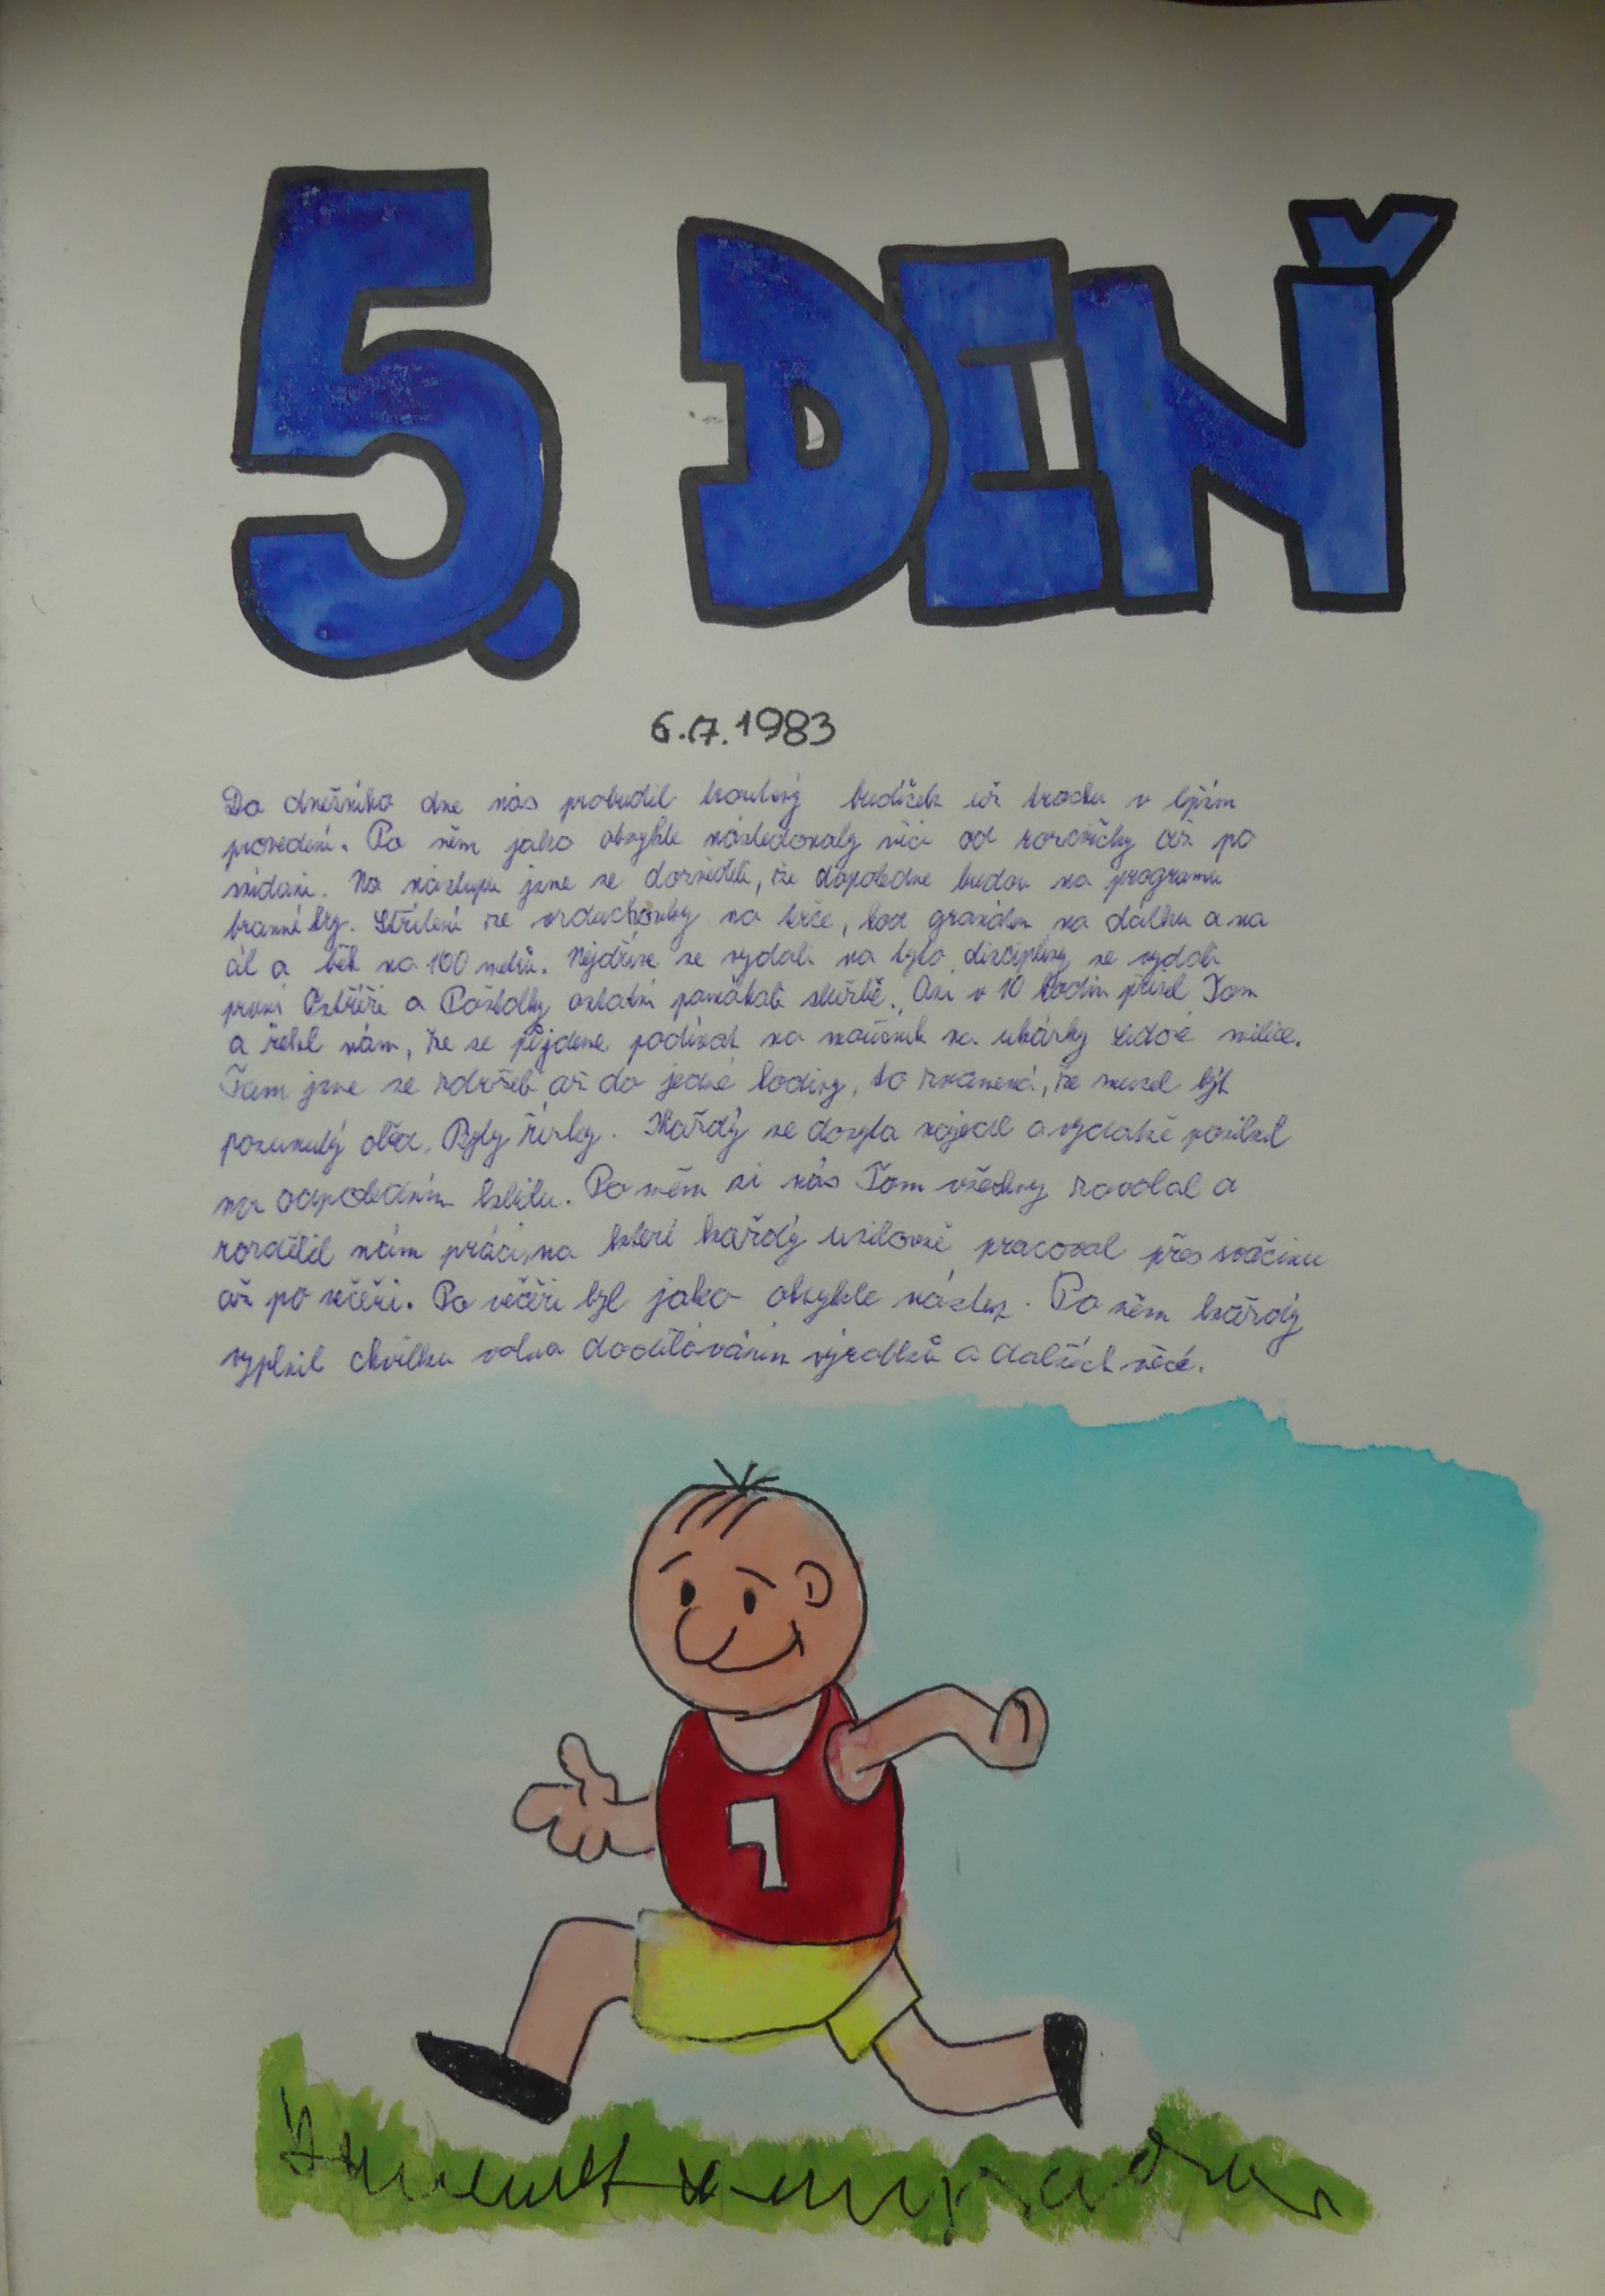 5. DEŇ
6.7.1983
Do dnešního dne nás probudil budíček už trochu v lepším
provedení. Po něm jako obvykle následovaly věci od rozcvičky až po
snídani. Na nástupu jsme se dozvěděli, že dopoledne budou na programu
branné hry. Střílení ze vzduchovky na terče, hod granátem na dálku a na
cíl a běh na 100 metrů. Nejdříve se vydali na tyto disciplíny se vydali
první Ostříži a Poštolky ostatní pomáhali službě. Asi v 10 hodin přišel Tom
a řekl nám, že se půjdeme podívat na na ukázky Lidové milice.
Tam jsme se zdrželi až do jedné hodiny, to znamená, že musel být
posunutý oběd. Byly řízky. Každý se dosyta najedl a vydatně posilnil
na odpoledním klidu. Po něm si nás Tom všechny zavolal a
rozdělil nám práci, na které každý usilovně pracoval přes svačinu
až po večeři. Po večeři byl jako obvykle nástup. Po něm každý
vyplnil chvilku volna doděláváním výrobků a dalších věcí.
1